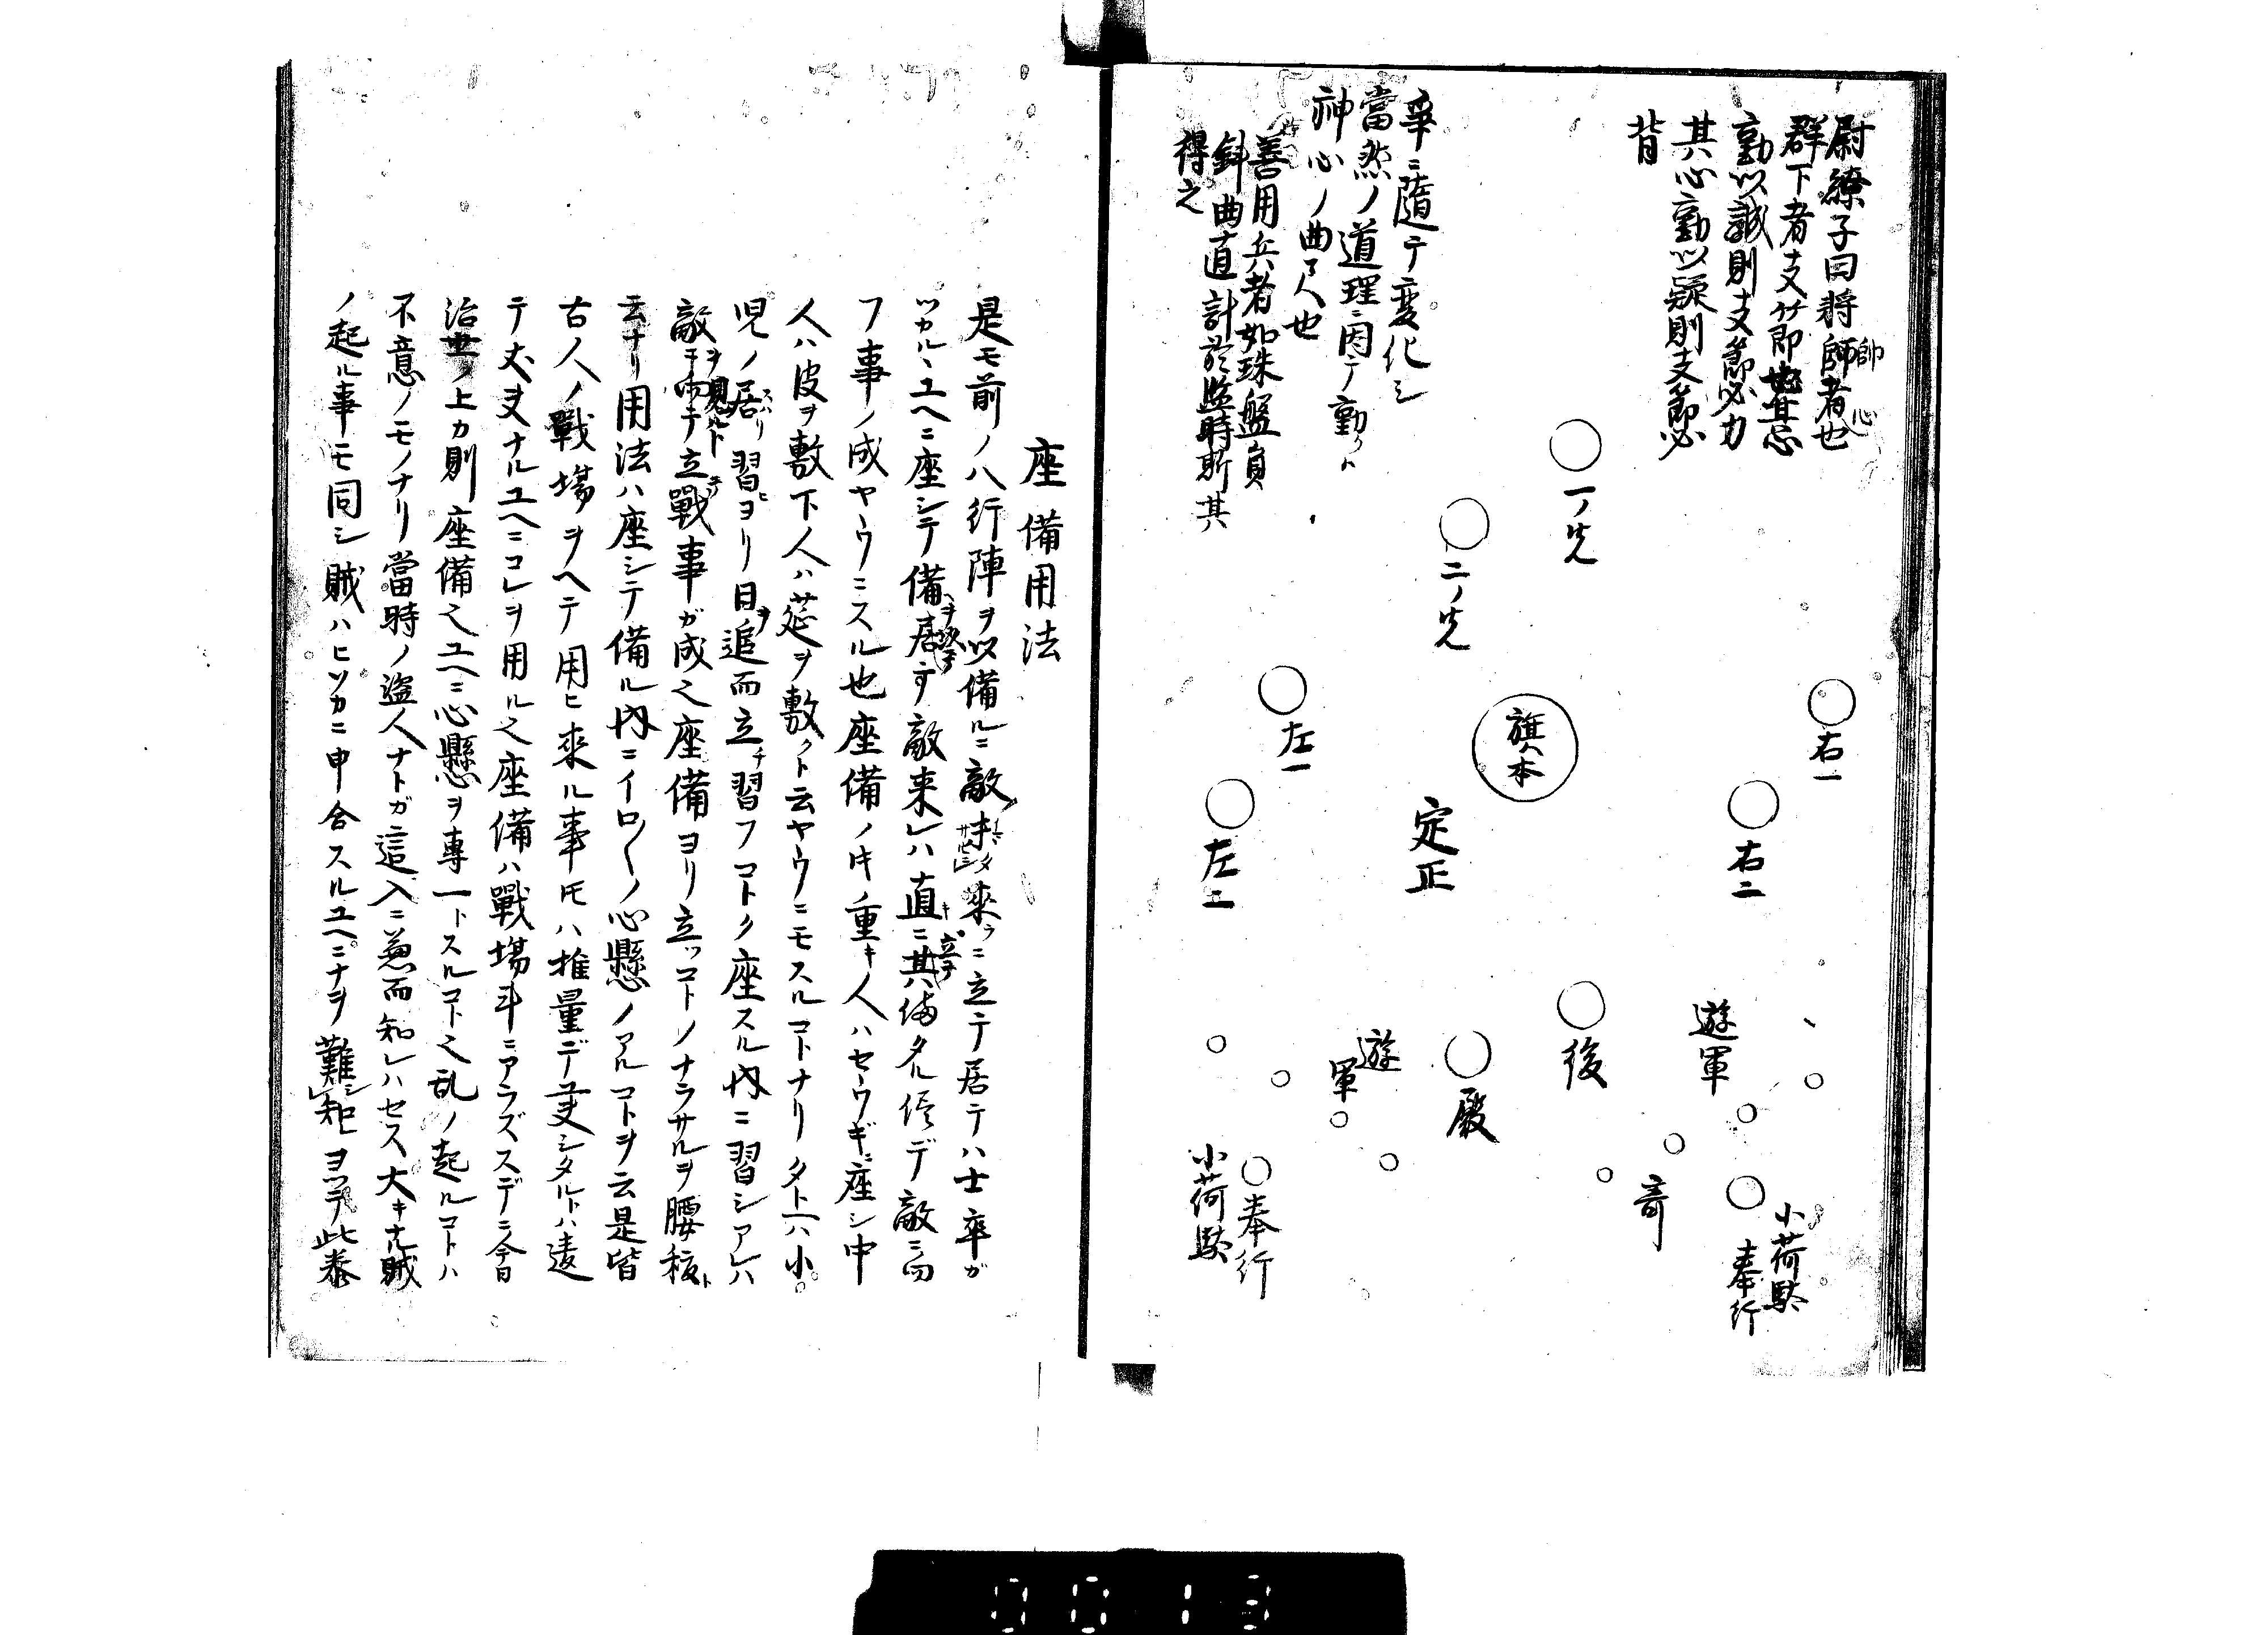 尉繚子曰将師者心也
帥
群下者支節也其心
動以誠則支節必力
其心動以疑則支節必
背
卒ニ随テ変化シ
當然ノ道理ニ因テ動クハ
神心ノ曲尺也
善用兵者如珠盤員
斜曲直計於臨時所其
得之
一ノ先
二ノ先
右一
右二
旗本
定正
左一
左二
後
殿
遊軍
遊軍
奇
小荷駄
奉行
奉行
小荷駄
座備用法
是モ前ノ八行陣ヲ以備ルニ敵未タ来ラサルニ立テ居テハ士卒ガ
ツカルヽユヘニ座シテ備ヲ堅す敵来レハ直ニ其備タル侭デ敵ニ向
フ事ノ成ヤウニスル也座備ノ時ノ重キ人ハセウギニ座シ中
人ハ皮ヲ敷下人ハ莚ヲ敷クト云ヤウニモスルコトナリタトヘハ小
児ノ居習ヒヨリ日ヲ追而立チ習フコトク座スル内ニ習シアレハ
敵ヲ見ルト立テ戰事ガ成之座備ヨリ立ツコトノナラサルヲ腰抜ト
云ナリ用法ハ座シテ備ル内ニイロ〱ノ心懸ノアルコトヲ云是皆
古人ノ戰場ヲヘテ用ヒ来ル事氏ハ推量デ支シタルトハ違
テ丈夫ナルユヘニコレヲ用ル之座備ハ戰場斗ニアラズスデニ今日
治世ノ上カ則座備之ユヘニ心懸ヲ專一トスルコト之乱ノ起ルコトハ
不意ノモノナリ當時ノ盗人ナトガ這入ニ兼而知レハセス大キナ賊
ノ起ル事モ同シ賊ハヒソカニ申合スルユヘニナヲ難シ知ヨツテ此泰
0013